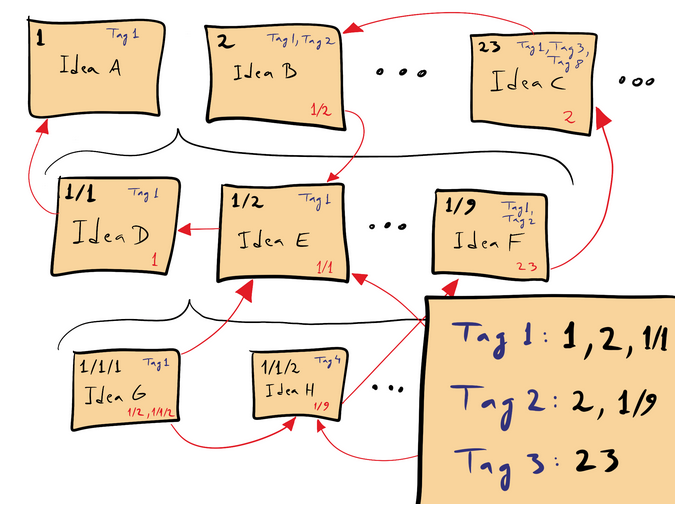 1 Tag 1
Idea A
2 Tag 1, Tag 2
Idea B
1/2
...
23 Tag 1, Tag 3,
Tag 8
Idea C
2
...
1/1 Tag 1
Idea D
1
1/2 Tag 1
Idea E
1/1
...
1/9 Tag 1,
Tag 2
Idea F
23
1/1/1 Tag 1
Idea G
1/2, 1/1/2
1/1/2 Tag 4
Idea H
1/9
...
Tag 1: 1, 2, 1/1
Tag 2: 2, 1/9
Tag 3: 23